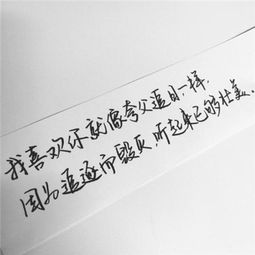 我喜欢你就像夸父追日一样,
因为追逐而毁灭,听起来已够壮美、